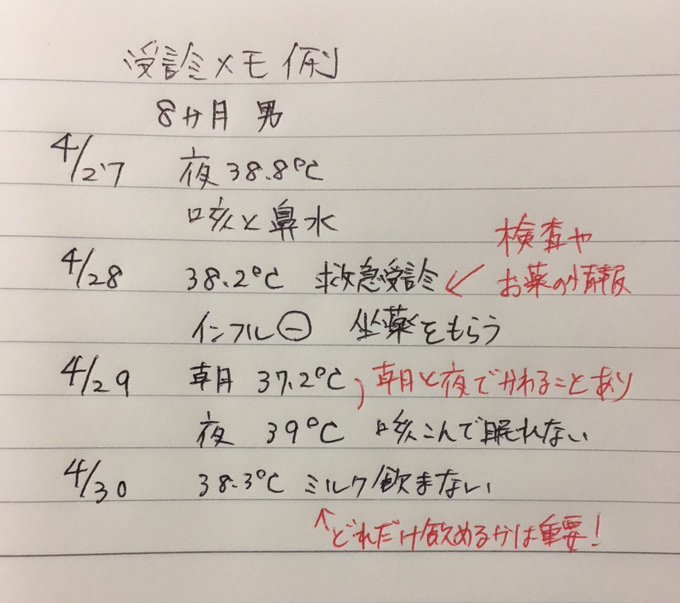 受診メモ例
8か月 男
4/27 夜 38.8℃
咳と鼻水
4/28 38.2℃ 救急受診
検査や
お薬の情報
インフル⊖ 坐薬をもらう
4/29 朝 37.2℃
朝と夜でかわることあり
夜 39℃ 咳こんで眠れない
4/30 38.3℃ ミルク飲まない
↑どれだけ飲めるかは重要!